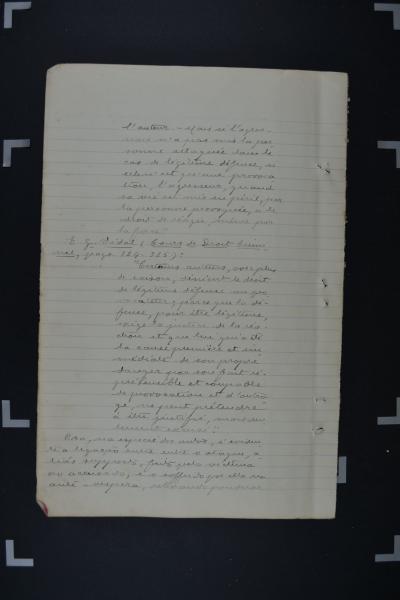 l'auteur. - Mais si l'agres-
sion n'a pas mis la per-
sonne attaquée dans le
cas de légitime défense, si
elle n'est qu'une provoca
tion, l'agresseur, quand
sa vie est mise en péril, par
la personne provoquée, a le
droit de réagir, même par
la force."
E G. Vidal (Cours de Droit Crimi-
nel, pags. 324-325):
"Certains auteurs, avec plus
de raison, dénient le droit
de légitime défense au pro-
vocateur, parce que la dé-
fense, pour être légitime,
exige la justice de la réa-
ction et que celui qui a été
la cause première et im
médiate de son propre
danger par son fait ré-
préhensible et coupable
de provocation et d'outra-
ge, ne peut prétendre
à être justifié, mais seu
lement excusé."
Ora, na especie dos autos, é eviden
te a ligação entre o ataque, a-
liás supposto, feito pela victima
ao accusado, e o soffrido por ella na
ante-vespera,